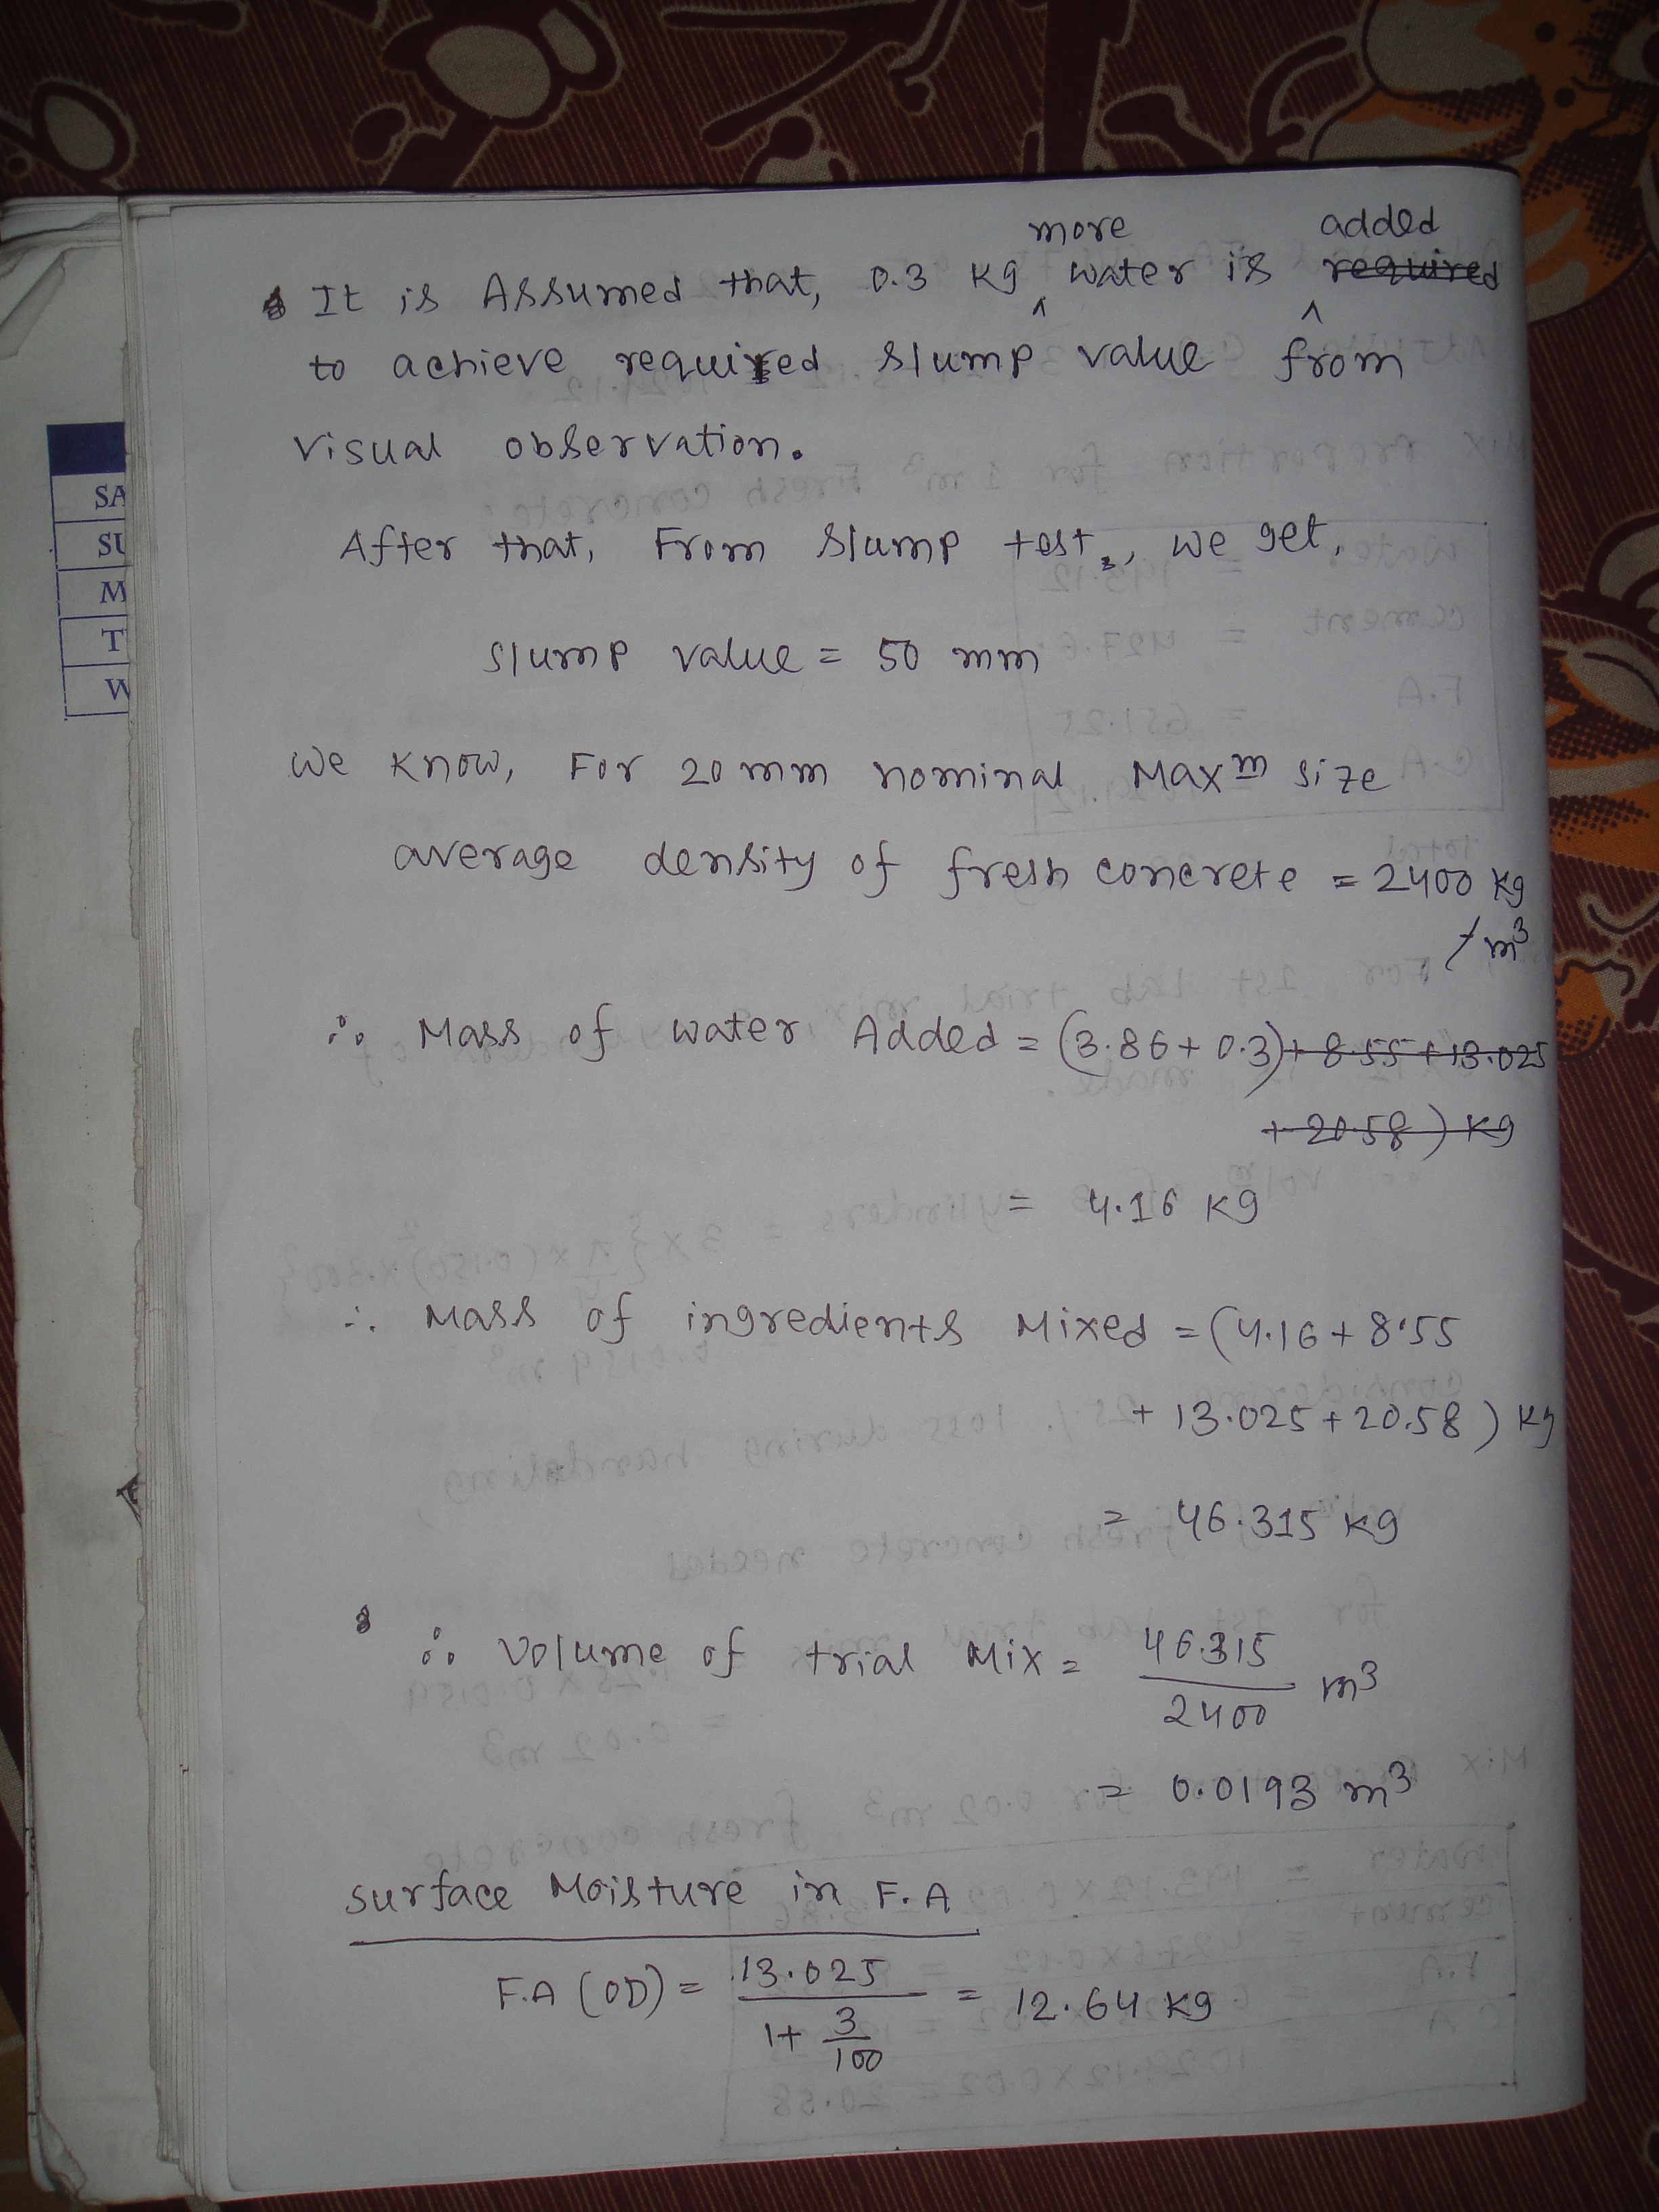 more added
It is Assumed that, 0.3 kg ^ water is ^ required
to achieve required slump value from
visual observation.
After that, From slump test, we get,
slump value = 50 mm
We know, For 20 mm nominal Maxm size
average density of fresh concrete = 2400 kg
/m³
∴ Mass of water Added = (3.86 + 0.3) + 8.55 + 13.025
+ 20.58) kg
= 4.16 kg
∴ Mass of ingredients Mixed = (4.16 + 8.55
+ 13.025 + 20.58) kg
= 46.315 kg
∴ Volume of trial Mix = 46.315 / 2400 m³
= 0.0193 m³
Surface Moisture in F.A
F.A (OD) = 13.025 / 1 + 3/100 = 12.64 kg
SA
SU
M
T
W